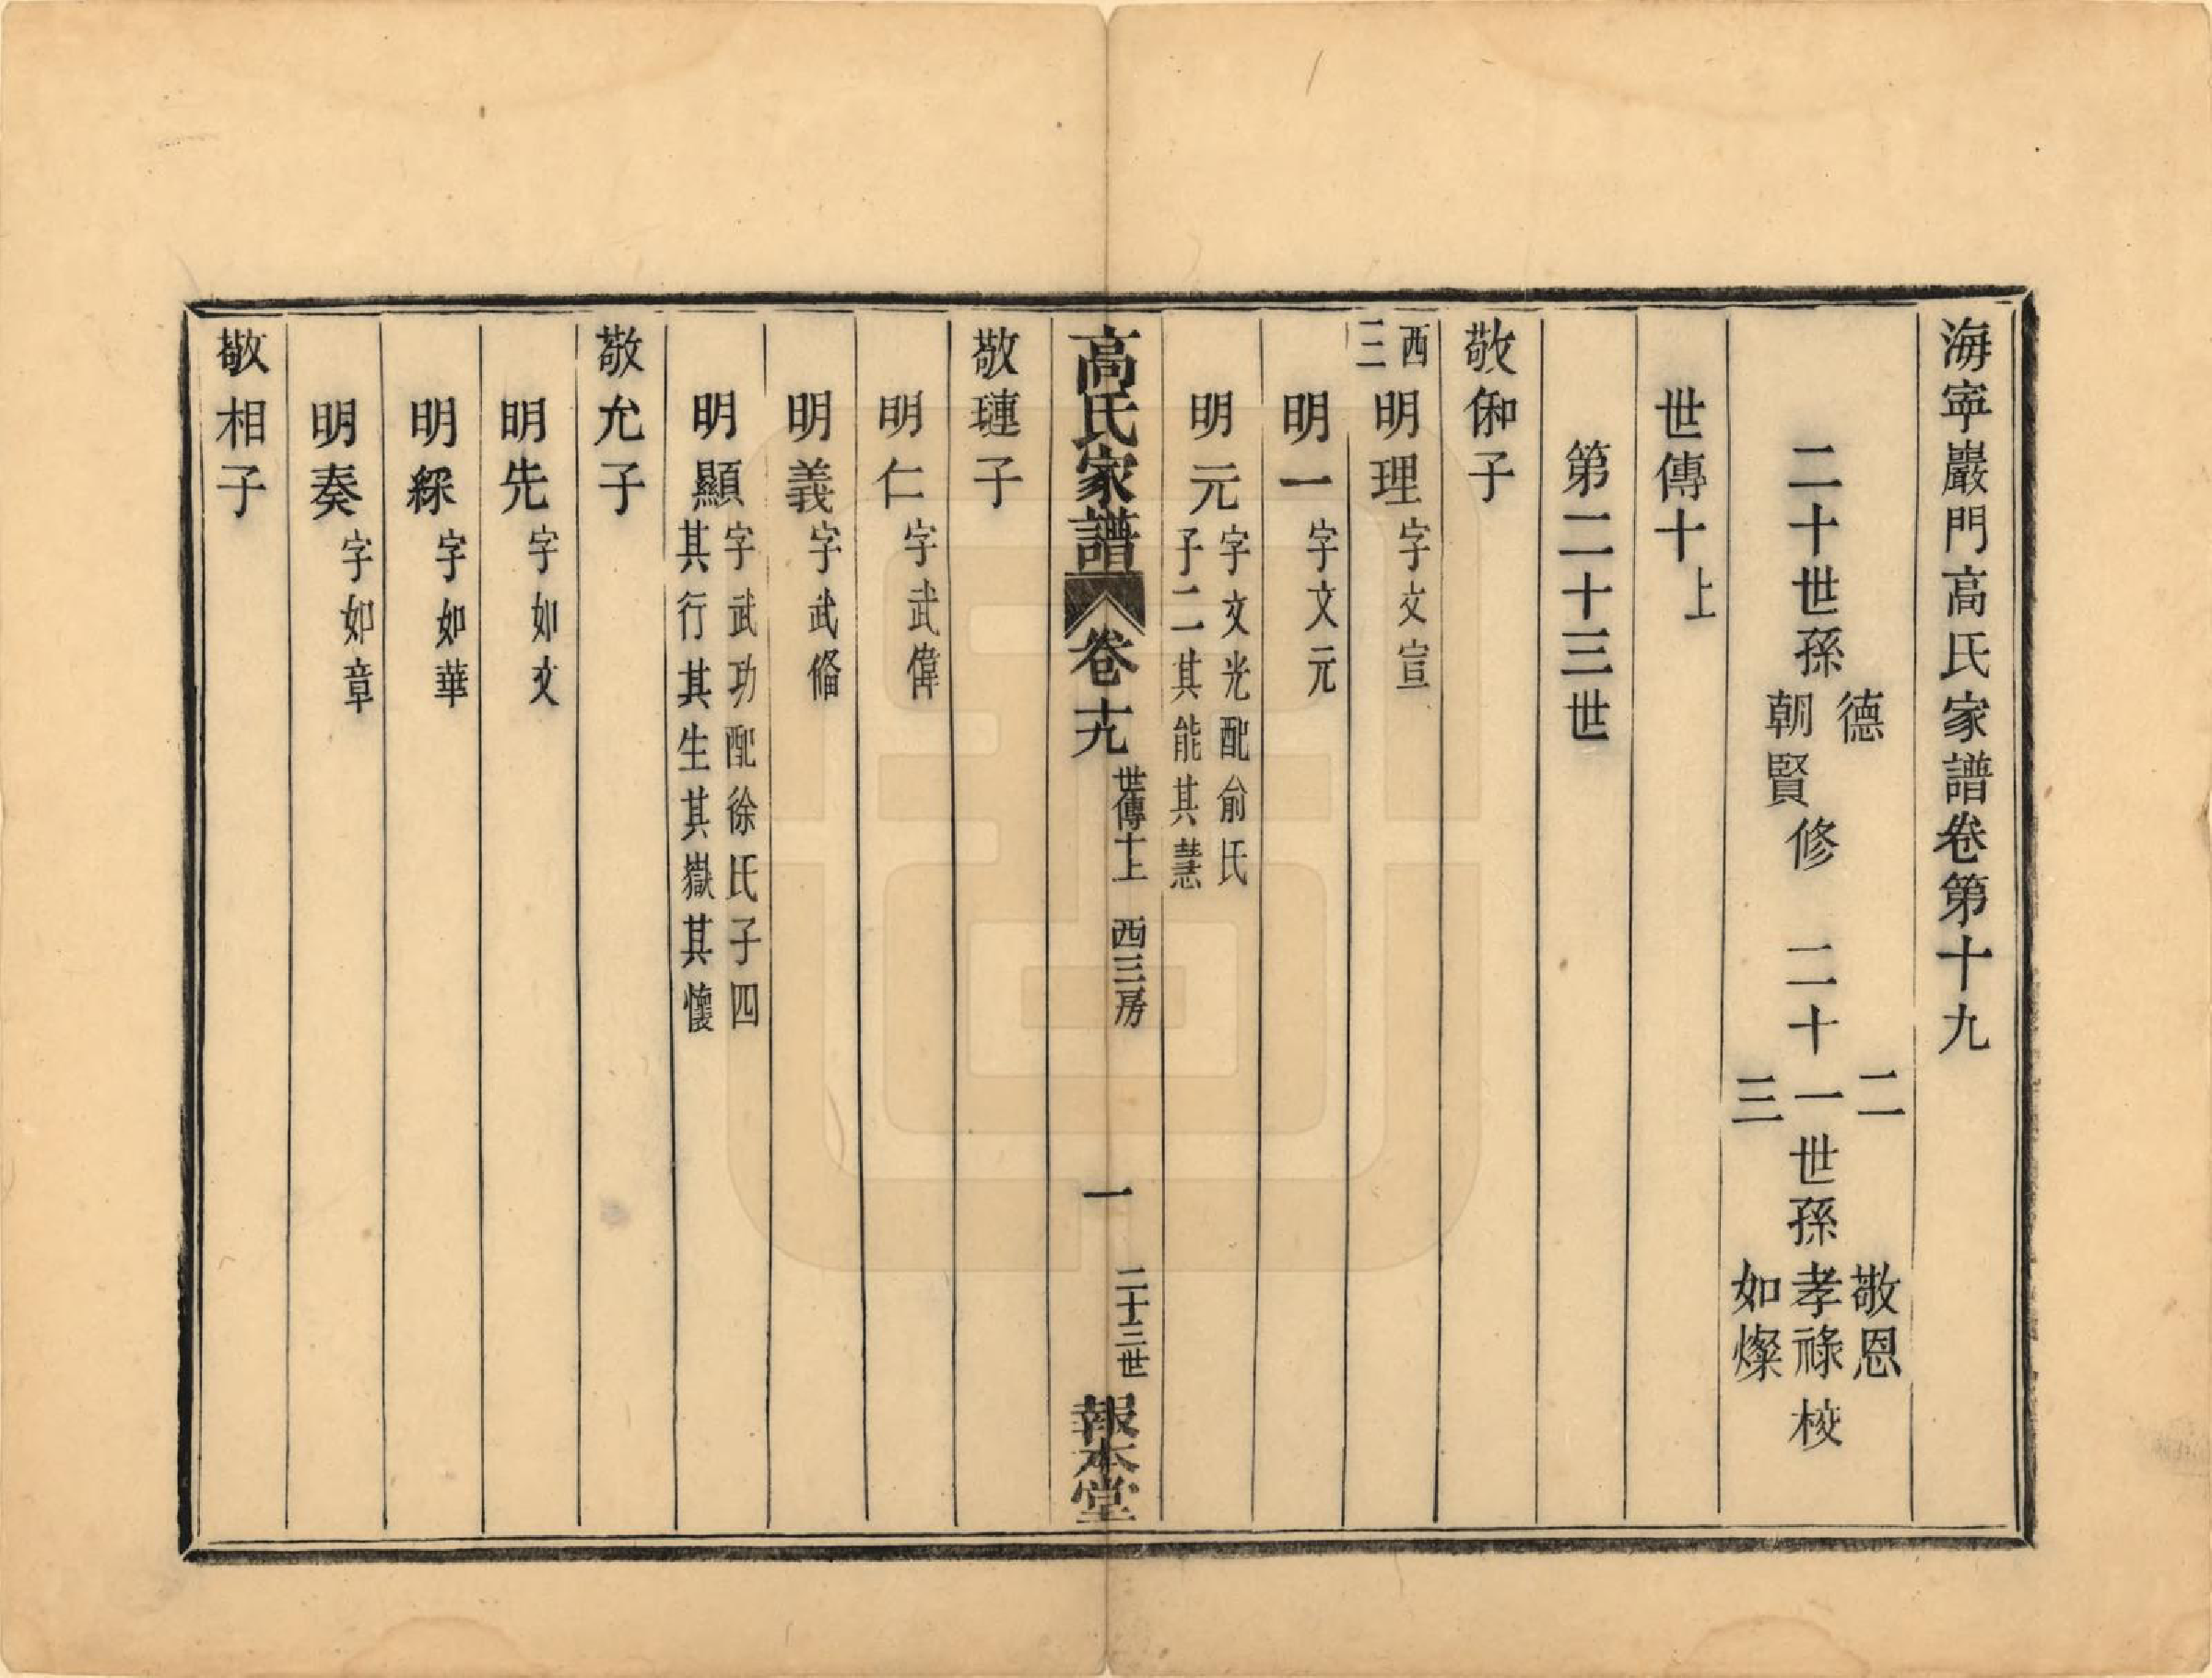 海寧巖門高氏家譜卷第十九
二十世孫德朝賢修　二十二一三世孫敬恩孝祿如燦校
世傳十上
第二十三世
敬俰子
西三明理字文宣
明一字文元
明元字文光配俞氏子二其能其慧
高氏家譜　卷十九　世傳十上　西三房　一　二十三世　報本堂
敬璉子
明仁字武偉
明義字武脩
明顯字武功配徐氏子四其行其生其嶽其懷
敬允子
明先字如文
明綵字如華
明奏字如章
敬相子